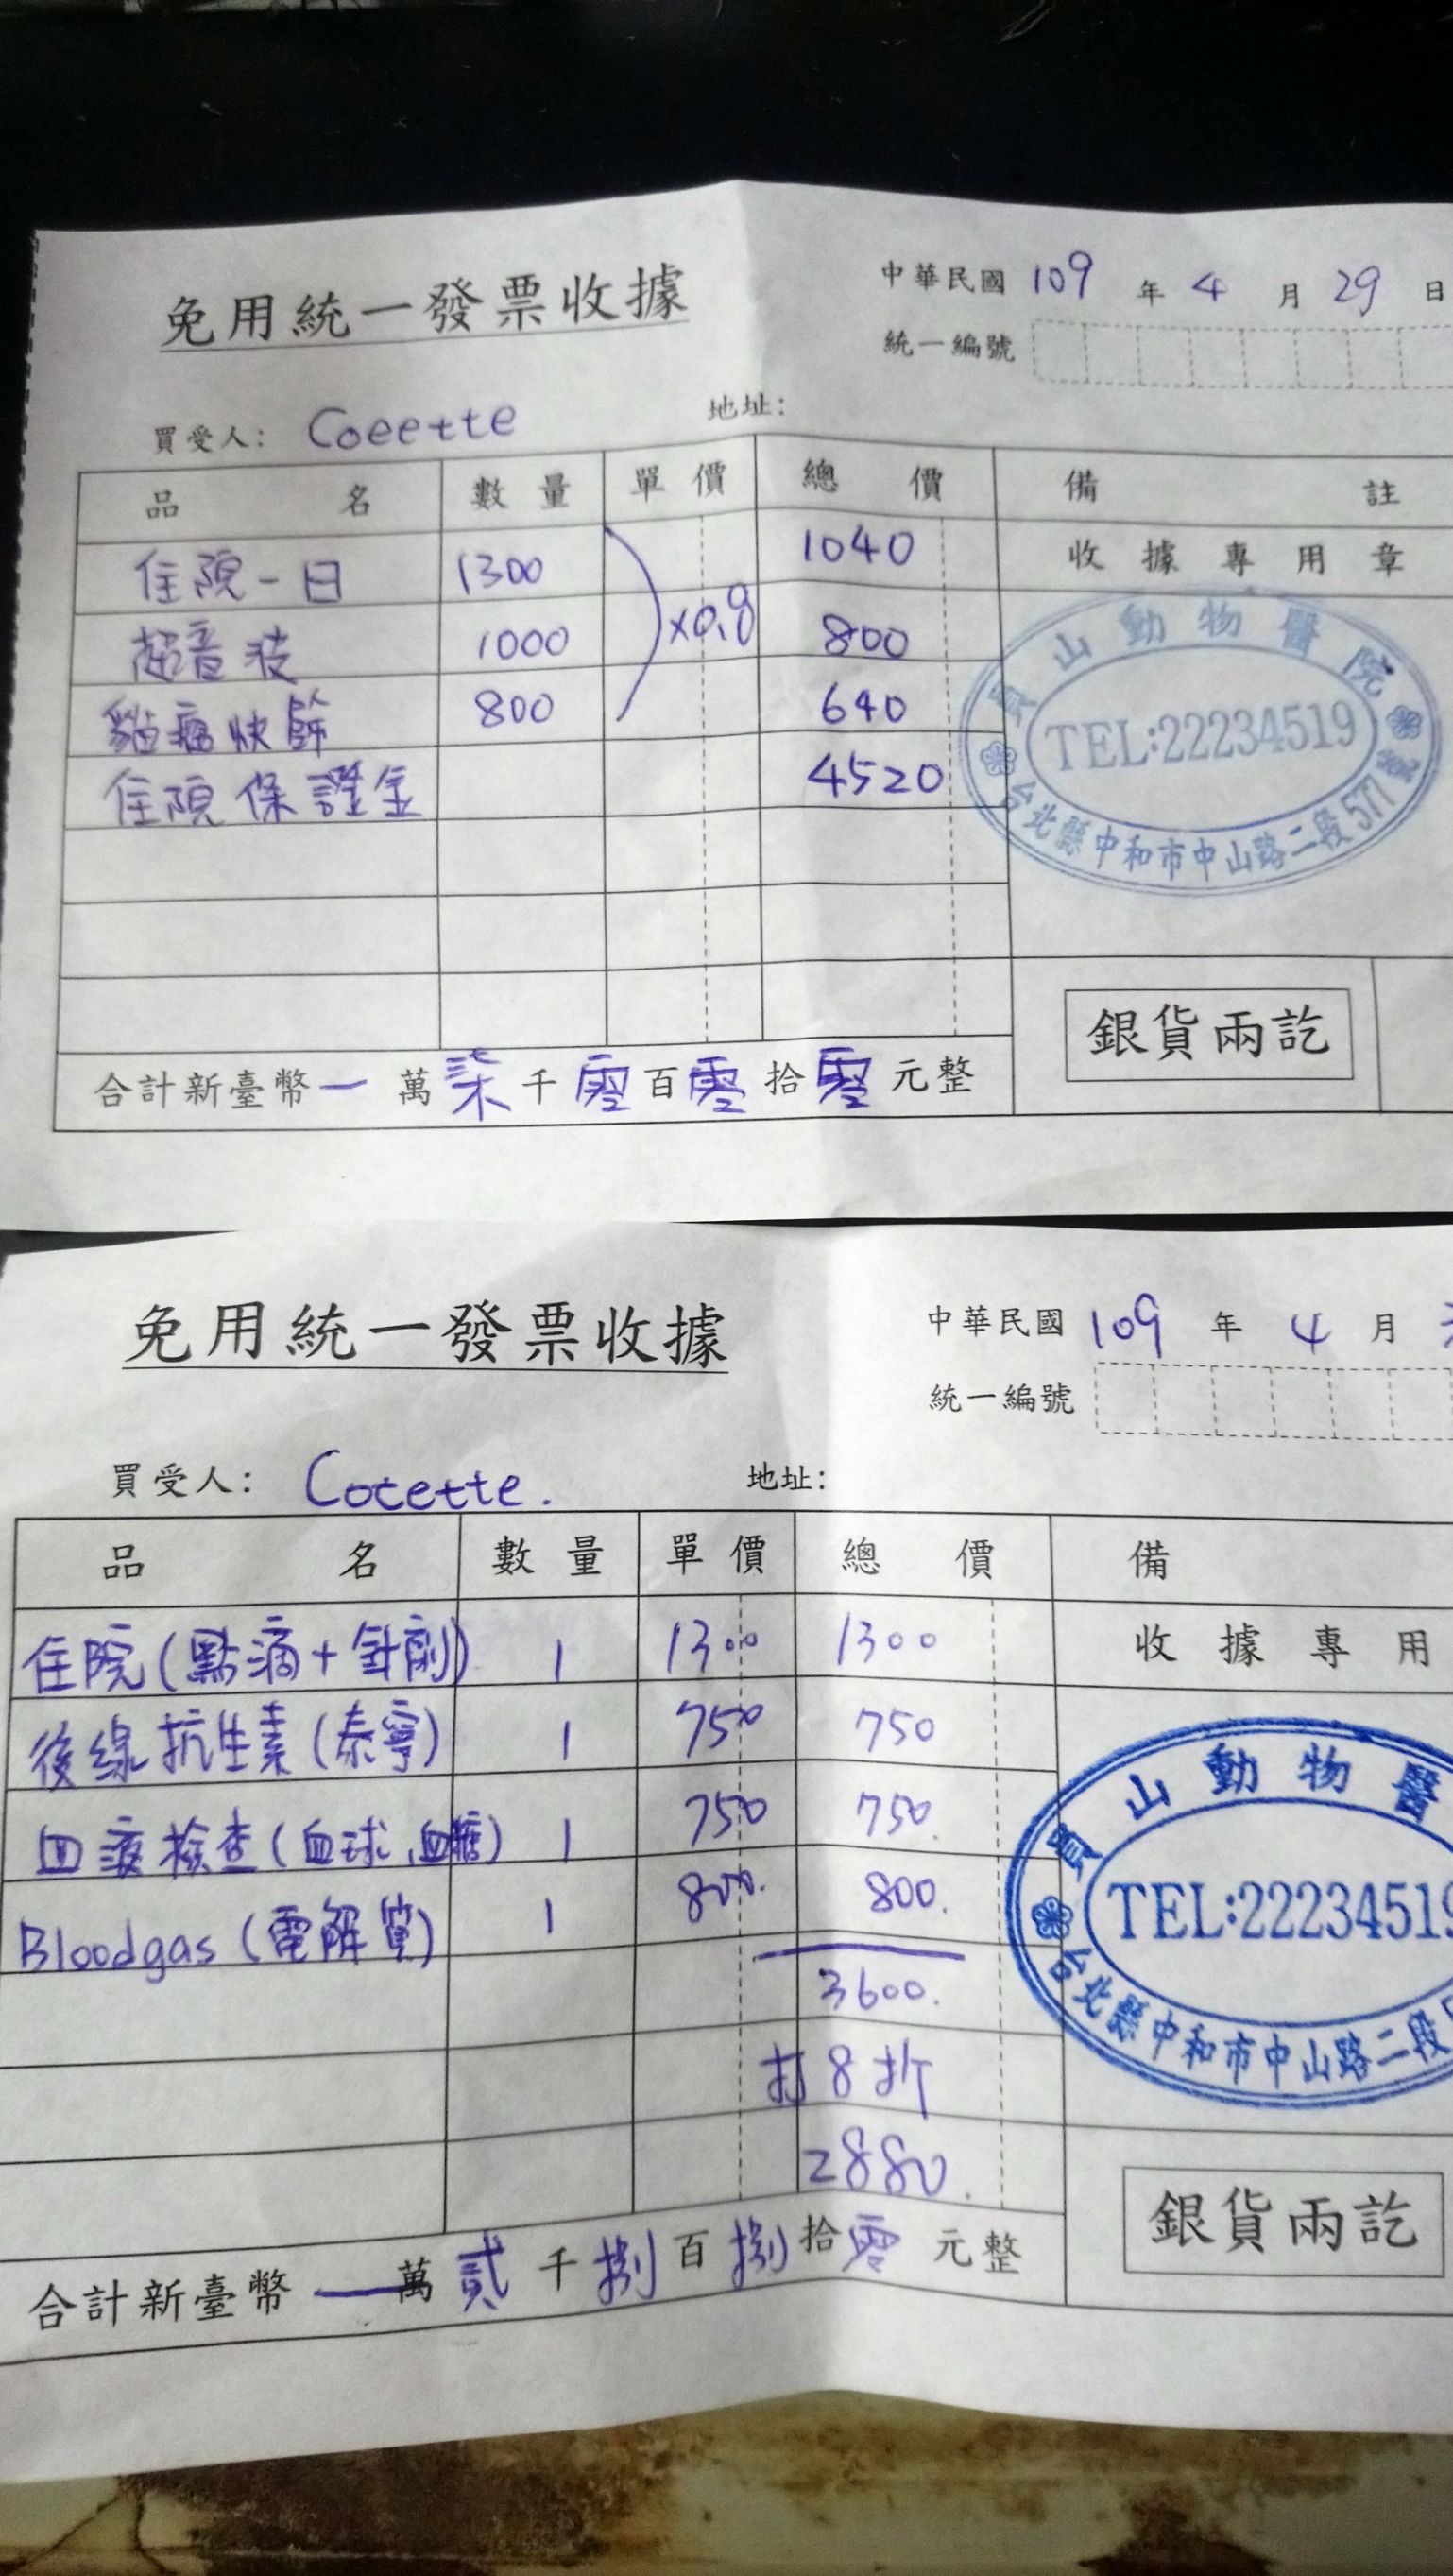 免用統一發票收據
中華民國 109 年 4 月 29 日
統一編號
買受人： Coeette 地址：
品名 數量 單價 總價 備註
住院一日 1300 1040 收據專用章
超音波 1000 ×0.8 800
貓瘟快篩 800 640
住院保證金 4520
員山動物醫院
TEL:22234519
台北縣中和市中山路二段577號
銀貨兩訖
合計新臺幣 一 萬 柒 千 零 百 零 拾 零 元整
免用統一發票收據
中華民國 109 年 4 月
統一編號
買受人： Cocette. 地址：
品名 數量 單價 總價 備
住院(點滴+針劑) 1 1300 1300 收據專用
後線抗生素(泰寧) 1 750 750
血液檢查(血球,血糖) 1 750 750.
Bloodgas (電解質) 1 800. 800.
3600.
打8折
2880.
員山動物醫
TEL:2223451
台北縣中和市中山路二段
銀貨兩訖
合計新臺幣 一 萬 貳 千 捌 百 捌 拾 零 元整